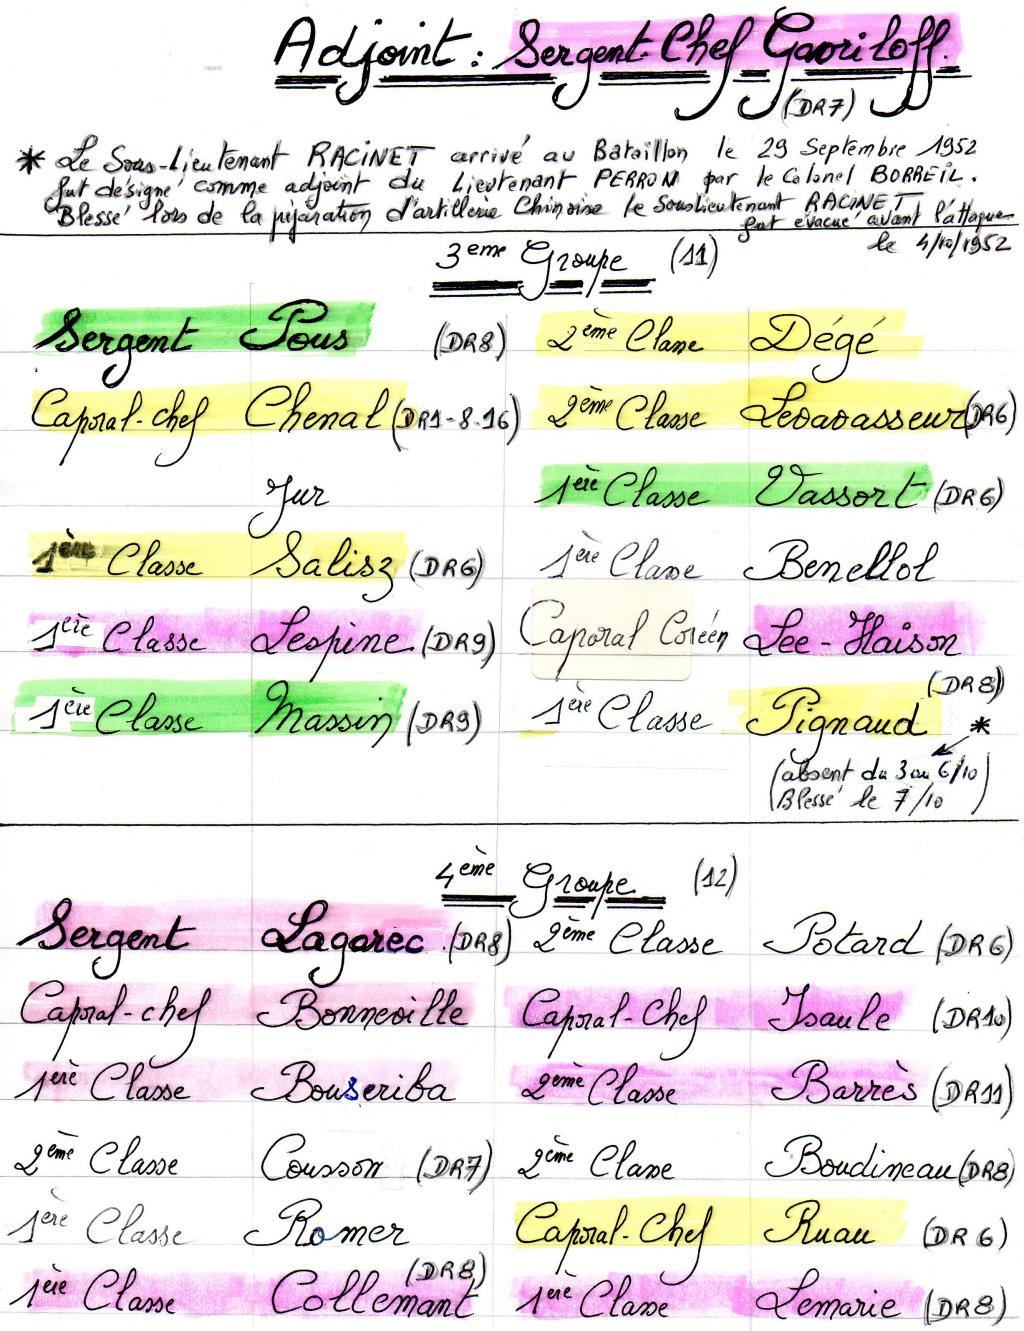 Adjoint: Sergent-Chef Gavriloff.
(DR7)
* Le Sous-Lieutenant RACINET arrivé au Bataillon le 29 Septembre 1952
fut désigné comme adjoint du Lieutenant PERRON par le Colonel BORREIL.
Blessé lors de la préparation d'artillerie Chinoise le Souslieutenant RACINET
fut évacué avant l'attaque
le 4/10/1952
3eme Groupe (11)
Sergent Pous (DR8) 2ème Classe Dégé
Caporal-chef Chenal (DR1-8-16) 2ème Classe Levavasseur (DR6)
Jur 1ère Classe Vassort (DR6)
1ère Classe Salisz (DR6) 1ère Classe Benellol
1ère Classe Lespine (DR9) Caporal Coréen Lee-Haison
(DR8)
1ère Classe Massin (DR9) 1ère Classe Pignaud *
(absent du 3 au 6/10)
(Blessé le 7/10)
4ème Groupe (12)
Sergent Lagarec (DR8) 2ème Classe Potard (DR6)
Caporal-chef Bonneville Caporal-Chef Isaule (DR10)
1ère Classe Bouseriba 2ème Classe Barrès (DR11)
2ème Classe Cousson (DR7) 2ème Classe Boudineau (DR8)
1ère Classe Romer Caporal-Chef Ruau (DR6)
(DR8)
1ère Classe Collemant 1ère Classe Lemarie (DR8)